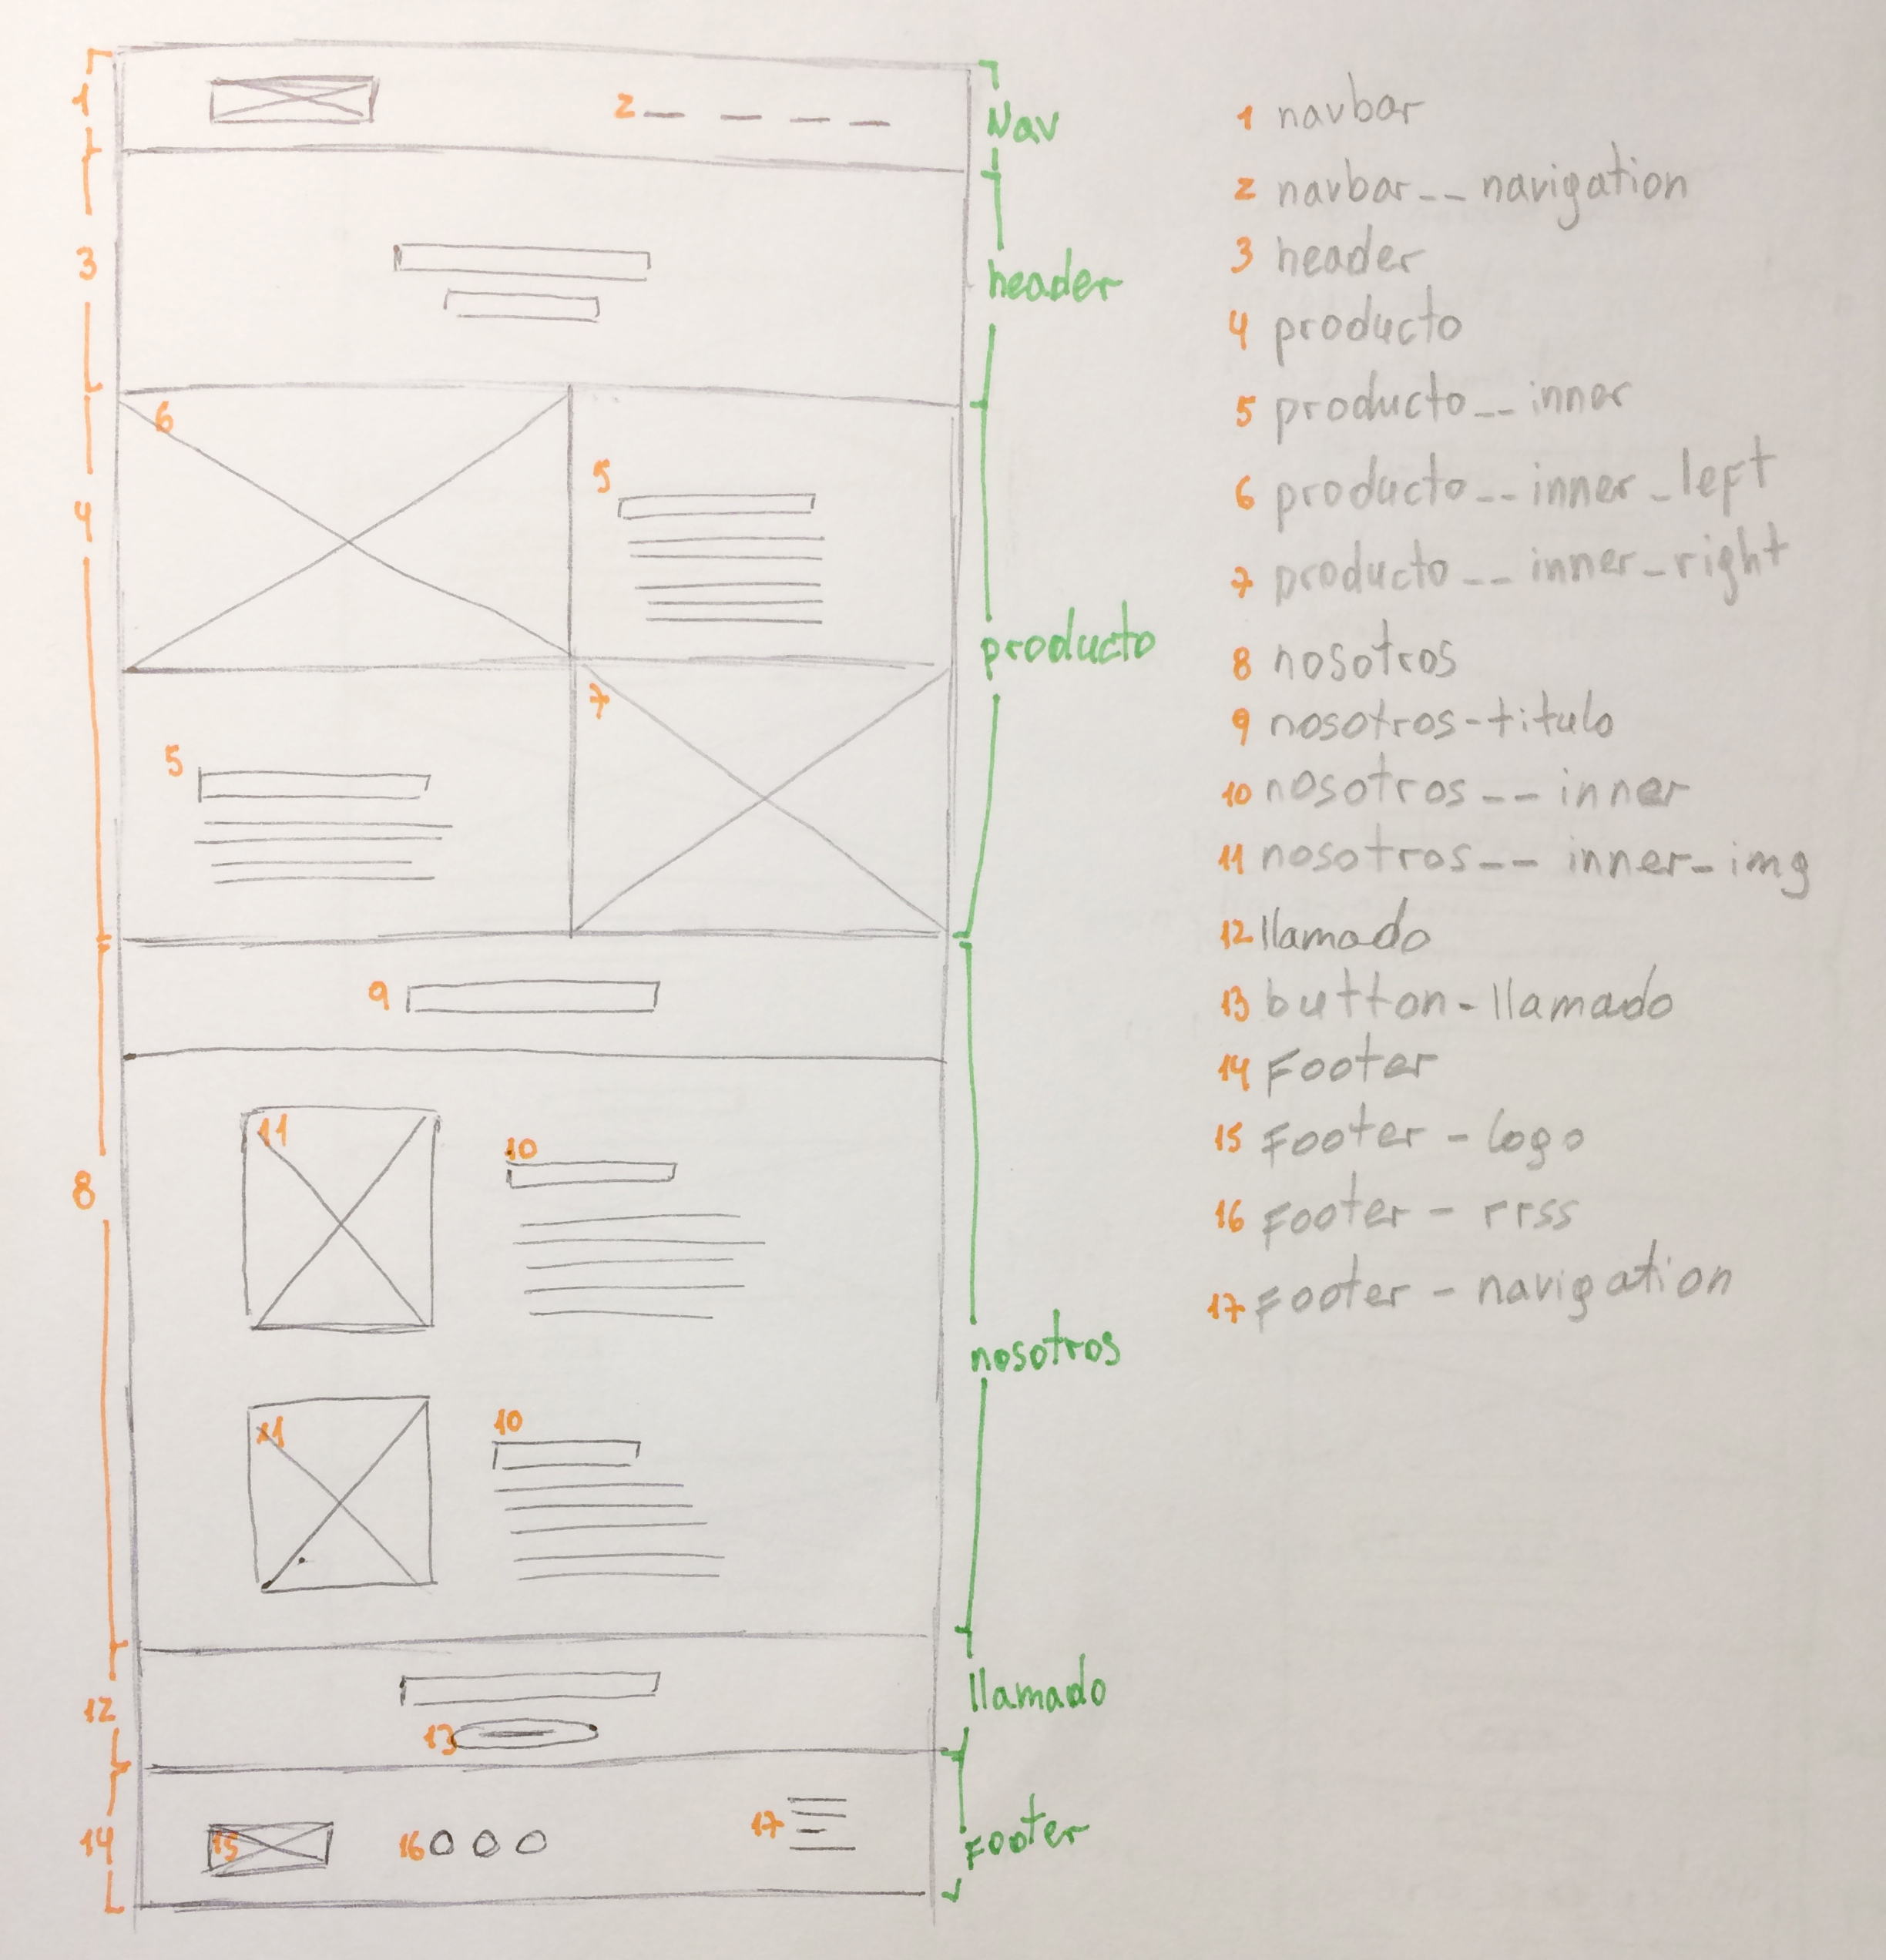 1
2
Nav
3
header
6
5
4
producto
7
5
9
11
10
8
nosotros
11
10
12
llamado
13
14
15
16
17
Footer
1 navbar
2 navbar__navigation
3 header
4 producto
5 producto__inner
6 producto__inner_left
7 producto__inner_right
8 nosotros
9 nosotros-titulo
10 nosotros__inner
11 nosotros__inner_img
12 llamado
13 button-llamado
14 Footer
15 Footer-logo
16 Footer-rrss
17 Footer-navigation